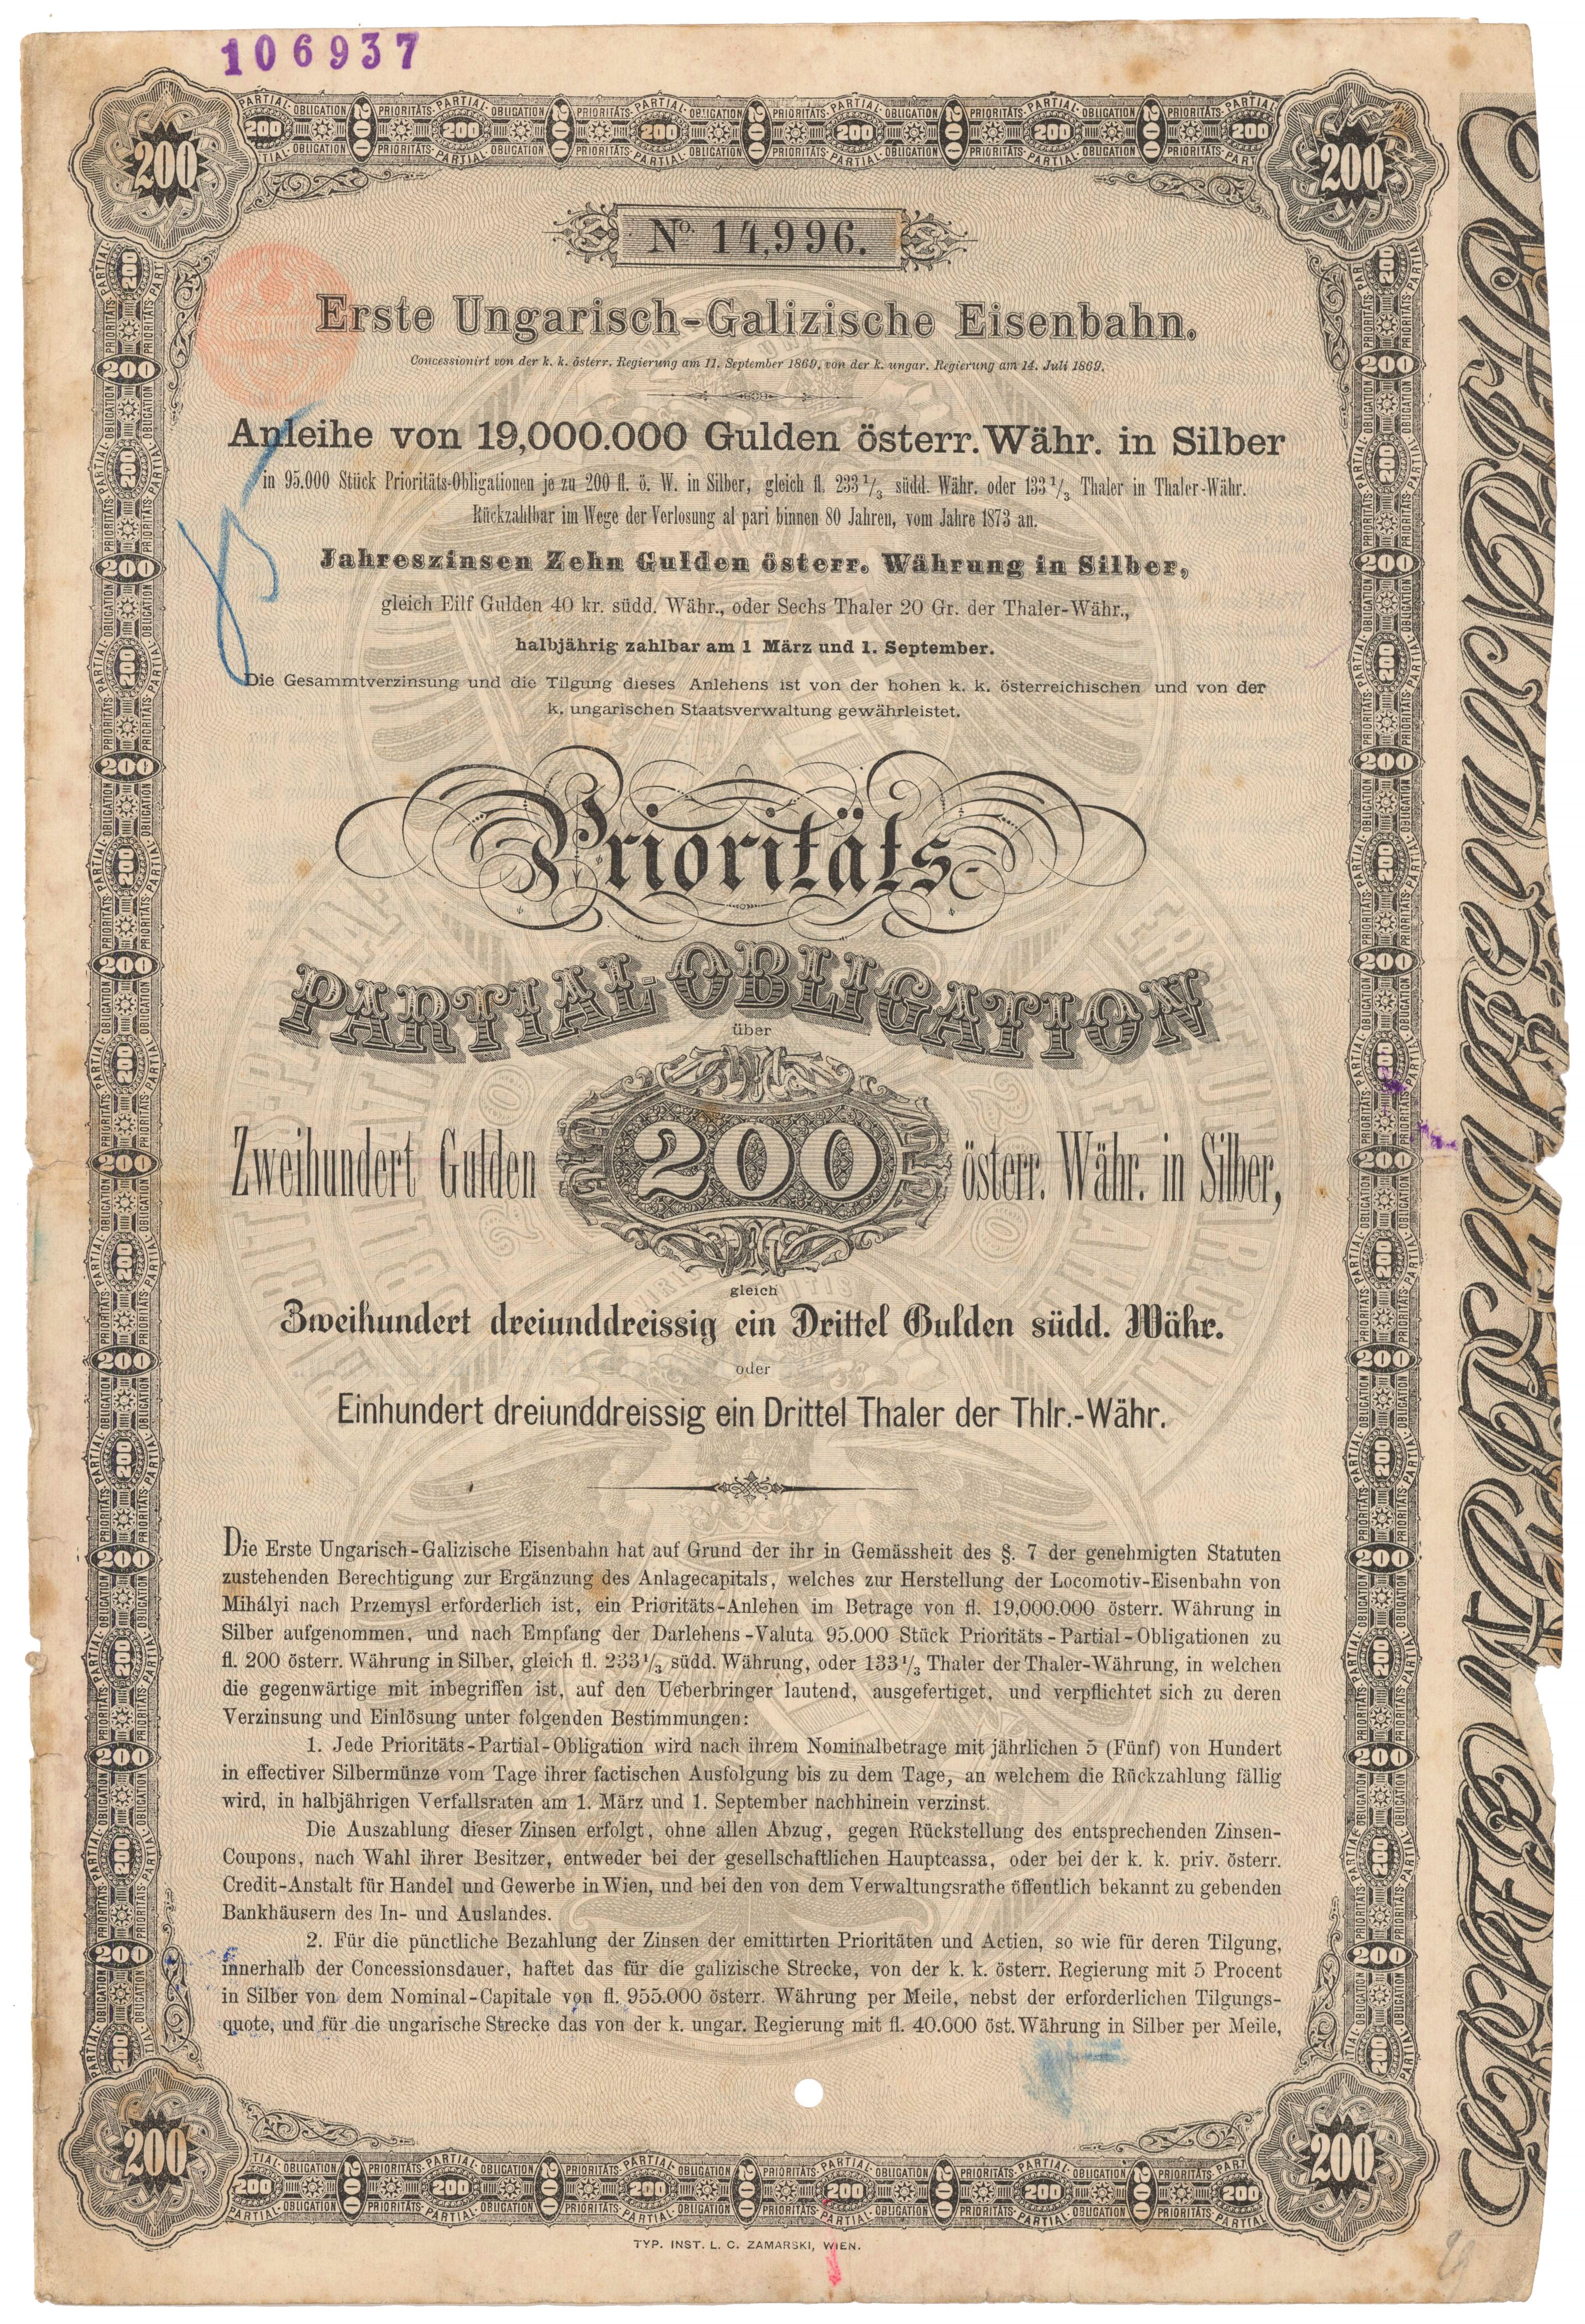 106937
200
200
No. 14,996.
Erste Ungarisch-Galizische Eisenbahn.
Concessionirt von der k. k. österr. Regierung am 11. September 1869, von der k. ungar. Regierung am 14. Juli 1869.
Anleihe von 19,000.000 Gulden österr. Währ. in Silber
in 95.000 Stück Prioritäts-Obligationen je zu 200 fl. ö. W. in Silber, gleich fl. 233 1/3 südd. Währ. oder 133 1/3 Thaler in Thaler-Währ.
Rückzahlbar im Wege der Verlosung al pari binnen 80 Jahren, vom Jahre 1873 an.
Jahreszinsen Zehn Gulden österr. Währung in Silber,
gleich Eilf Gulden 40 kr. südd. Währ., oder Sechs Thaler 20 Gr. der Thaler-Währ.,
halbjährig zahlbar am 1 März und 1. September.
Die Gesammtverzinsung und die Tilgung dieses Anlehens ist von der hohen k. k. österreichischen und von der
k. ungarischen Staatsverwaltung gewährleistet.
Prioritäts-
PARTIAL-OBLIGATION
über
Zweihundert Gulden 200 österr. Währ. in Silber,
gleich
Zweihundert dreiunddreissig ein Drittel Gulden südd. Währ.
oder
Einhundert dreiunddreissig ein Drittel Thaler der Thlr.-Währ.
Die Erste Ungarisch-Galizische Eisenbahn hat auf Grund der ihr in Gemässheit des §. 7 der genehmigten Statuten
zustehenden Berechtigung zur Ergänzung des Anlagecapitals, welches zur Herstellung der Locomotiv-Eisenbahn von
Mihályi nach Przemysl erforderlich ist, ein Prioritäts-Anlehen im Betrage von fl. 19,000.000 österr. Währung in
Silber aufgenommen, und nach Empfang der Darlehens-Valuta 95.000 Stück Prioritäts-Partial-Obligationen zu
fl. 200 österr. Währung in Silber, gleich fl. 233 1/3 südd. Währung, oder 133 1/3 Thaler der Thaler-Währung, in welchen
die gegenwärtige mit inbegriffen ist, auf den Ueberbringer lautend, ausgefertiget, und verpflichtet sich zu deren
Verzinsung und Einlösung unter folgenden Bestimmungen:
1. Jede Prioritäts-Partial-Obligation wird nach ihrem Nominalbetrage mit jährlichen 5 (Fünf) von Hundert
in effectiver Silbermünze vom Tage ihrer factischen Ausfolgung bis zu dem Tage, an welchem die Rückzahlung fällig
wird, in halbjährigen Verfallsraten am 1. März und 1. September nachhinein verzinst.
Die Auszahlung dieser Zinsen erfolgt, ohne allen Abzug, gegen Rückstellung des entsprechenden Zinsen-
Coupons, nach Wahl ihrer Besitzer, entweder bei der gesellschaftlichen Hauptcassa, oder bei der k. k. priv. österr.
Credit-Anstalt für Handel und Gewerbe in Wien, und bei den von dem Verwaltungsrathe öffentlich bekannt zu gebenden
Bankhäusern des In- und Auslandes.
2. Für die pünctliche Bezahlung der Zinsen der emittirten Prioritäten und Actien, so wie für deren Tilgung,
innerhalb der Concessionsdauer, haftet das für die galizische Strecke, von der k. k. österr. Regierung mit 5 Procent
in Silber von dem Nominal-Capitale von fl. 955.000 österr. Währung per Meile, nebst der erforderlichen Tilgungs-
quote, und für die ungarische Strecke das von der k. ungar. Regierung mit fl. 40.000 öst. Währung in Silber per Meile,
200
200
TYP. INST. L. C. ZAMARSKI, WIEN.